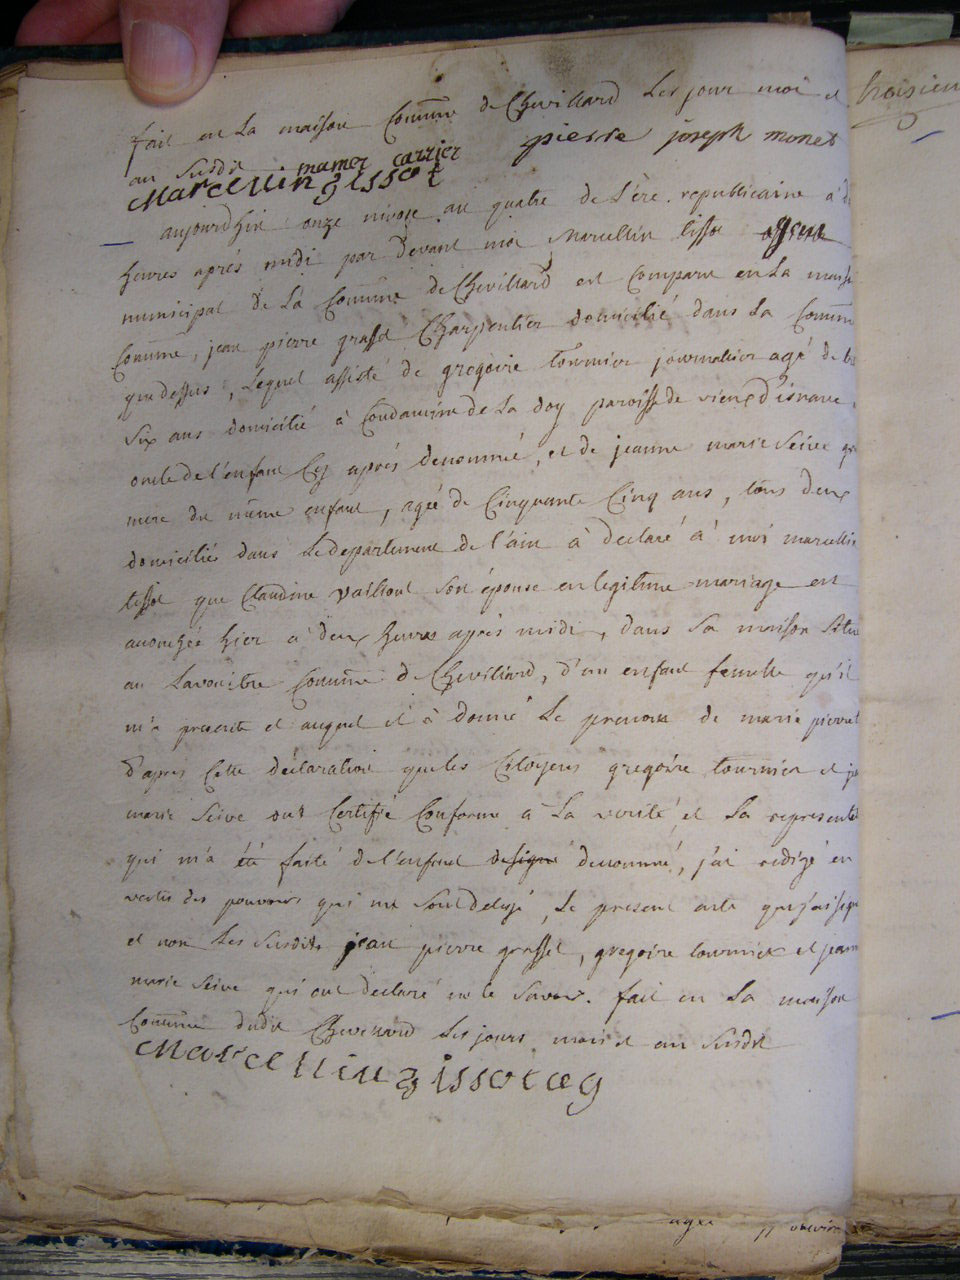 fait en La maison Comûne de Chevillard Les jour moi et
an susdit mamer carrier pierre joseph monet
Marcellin tissot
aujourdhui onze nivose an quatre de L'ère republicaine à
heures après midi par devant moi Marcellin tissot agent
municipal de La Comûne de Chevillard est Comparu en La
Comûne, jean pierre grasset Charpentier domicilié dans La Comûne
que dessus, Lequel assisté de gregoire tournier journalier agé de
six ans domicilié à Condamine de La doy paroisse de vieux d'isnave
oncle de l'enfant Cy après denommé, et de jeanne marie Seive
mere du même enfant, agée de Cinquante Cinq ans, tous deux
domiciliés dans Le departement de l'ain à declaré à moi marcellin
tissot que Claudine vailloud son épouse en legitime mariage est
accouchée hier a deux heures après midi, dans sa maison
au Lavouibre Comûne de Chevillard, d'un enfant femelle qu'il
m'a presenté et auquel il à donné Le prenom de marie pierrette
d'après Cette déclaration que les Citoyens gregoire tournier et
marie Seive ont Certifié Conforme a La verité, et La
qui m'a été faite de l'enfant designé denommé, j'ai redigé en
vertu des pouvoirs qui me sont delegé, Le present acte que j'ai
et non Les susdits jean pierre grasset, gregoire tournier et jeanne
marie Seive qui ont declaré ne le savoir. fait en La maison
Comûne dudit Chevillard Les jours, mois et an susdit
Marcellin tissot ag
troisieme
agée